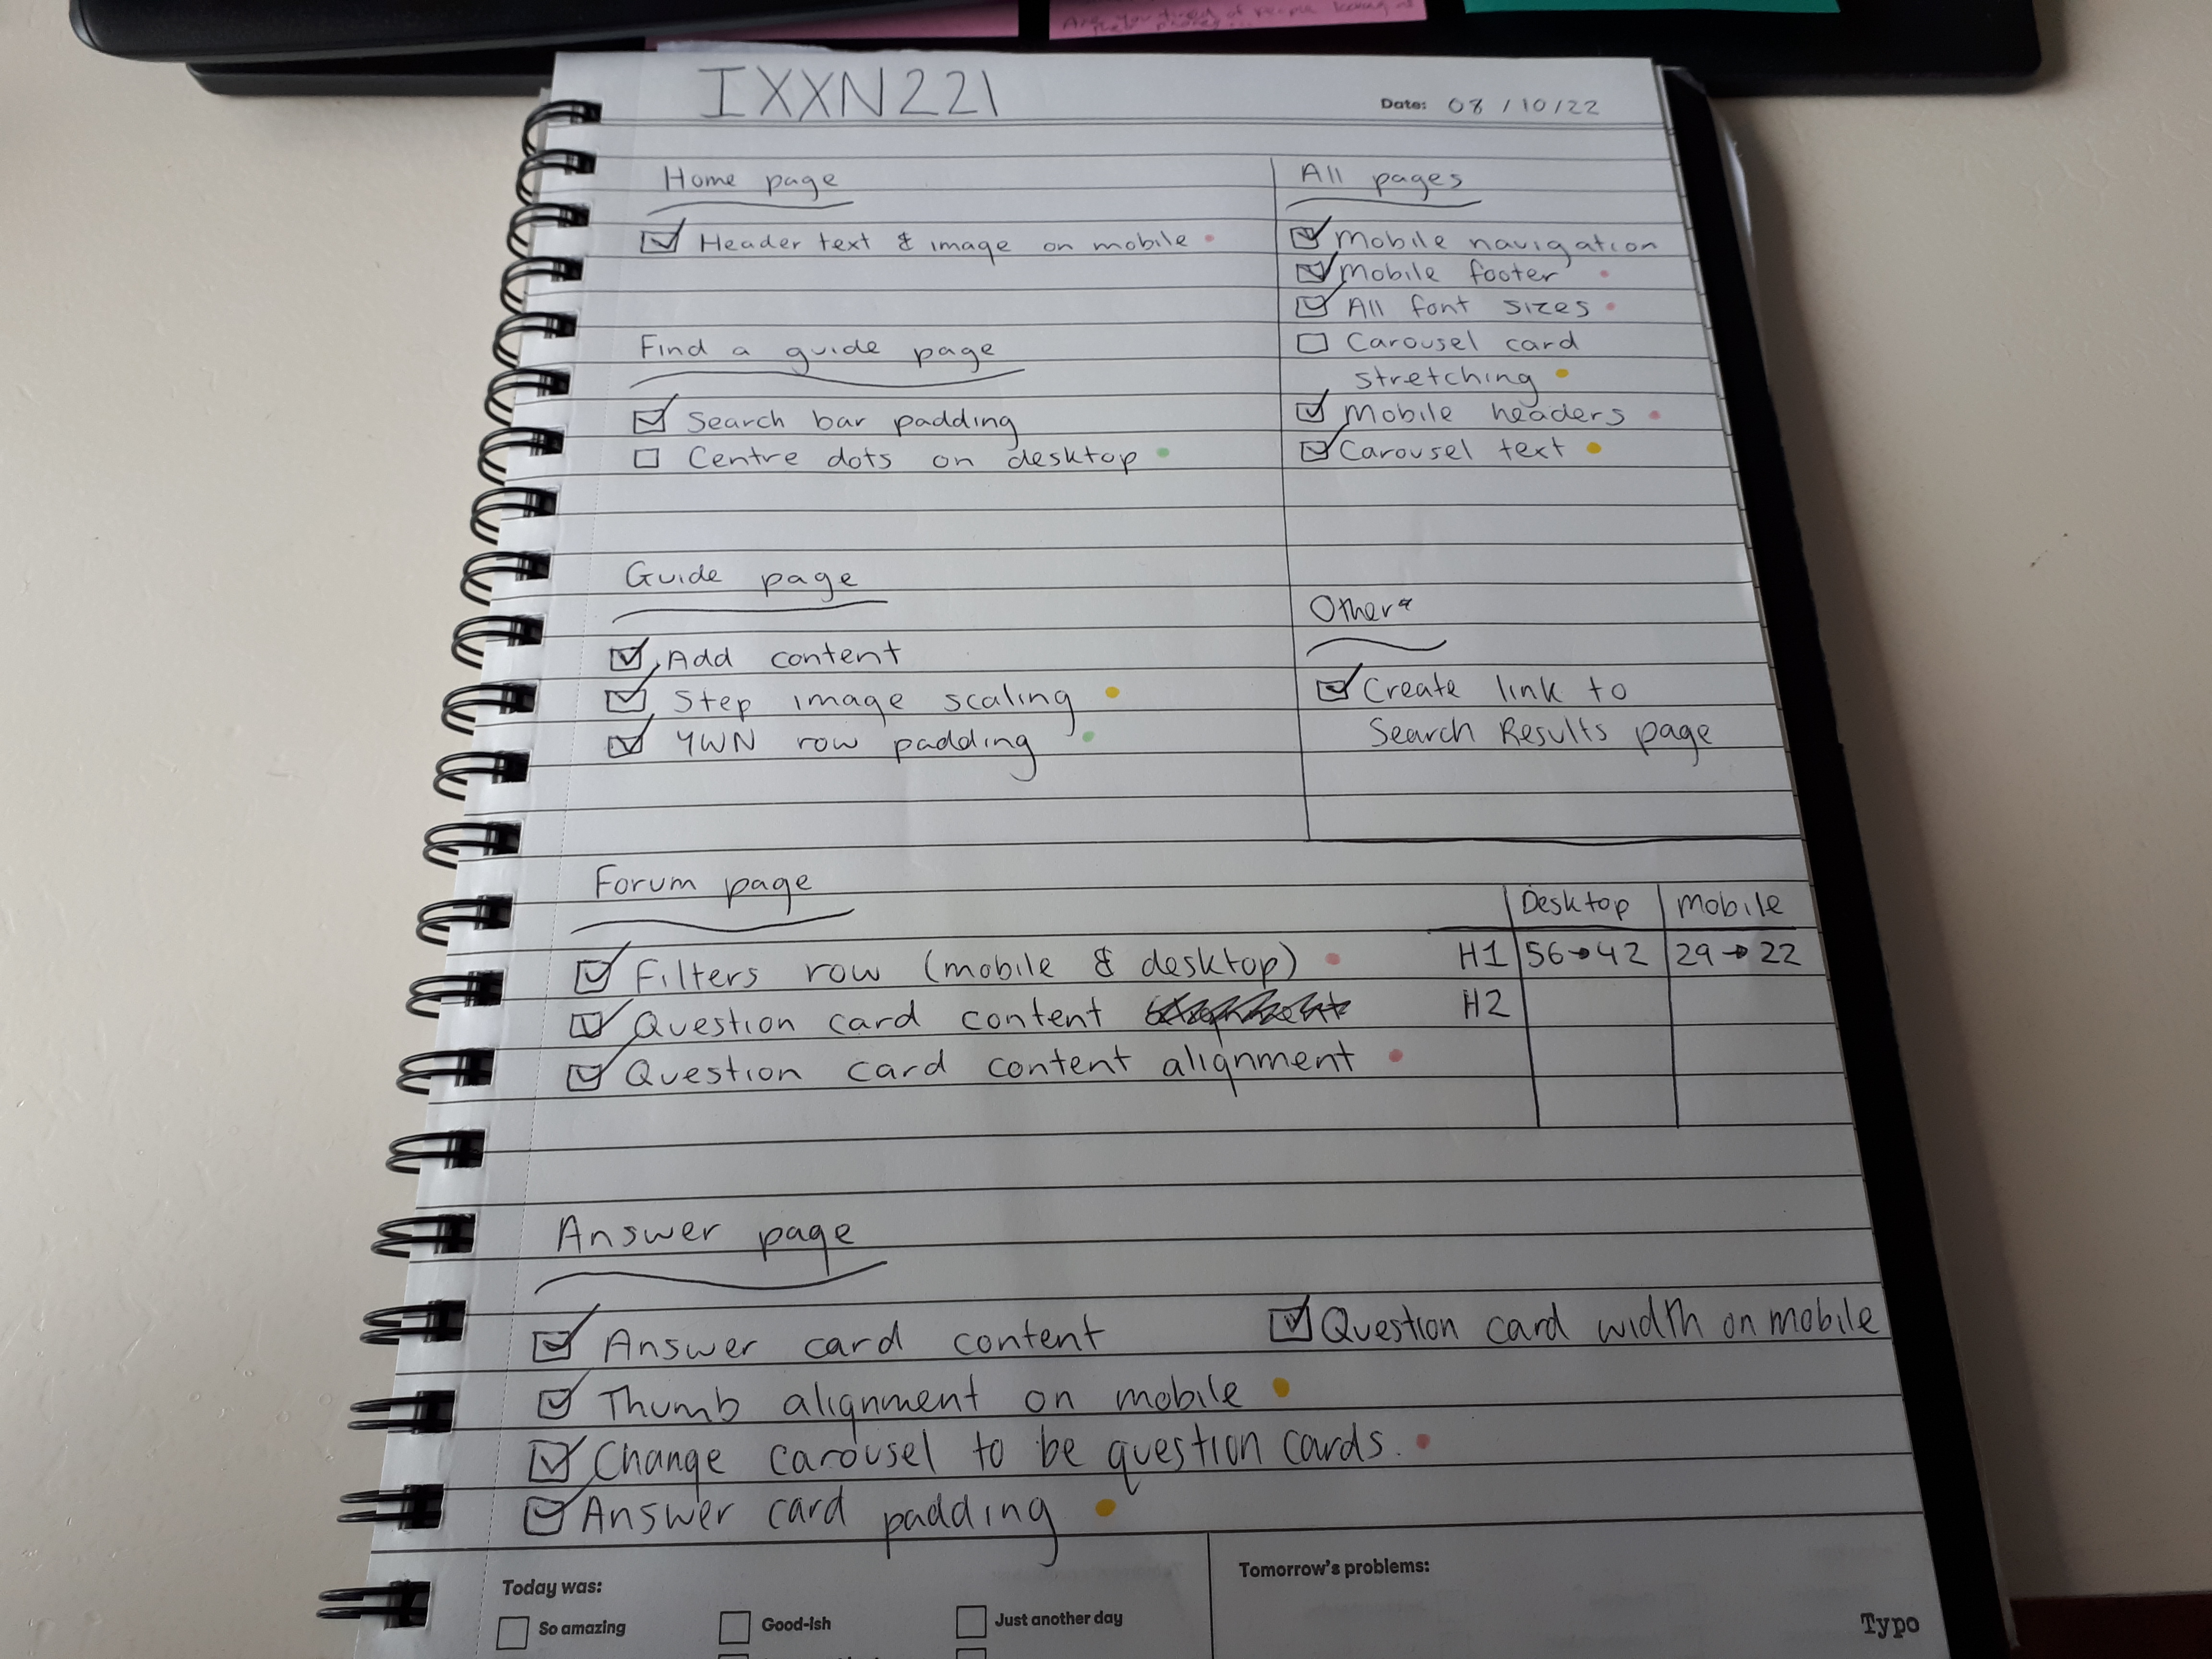 Are you tired of people looking at
their phones...
IXXN221
Date: 08/10/22
Home page
Header text & image on mobile
Find a guide page
Search bar padding
Centre dots on desktop
Guide page
Add content
Step image scaling
YWN row padding
All pages
Mobile navigation
Mobile footer
All font sizes
Carousel card
stretching
Mobile headers
Carousel text
Other
Create link to
Search Results page
Forum page
Filters row (mobile & desktop)
Question card content
Question card content alignment
Desktop Mobile
H1 56→42 29→22
H2
Answer page
Answer card content
Thumb alignment on mobile
Change carousel to be question cards.
Answer card padding
Question card width on mobile
Today was:
So amazing Good-ish Just another day
Tomorrow's problems:
Typo